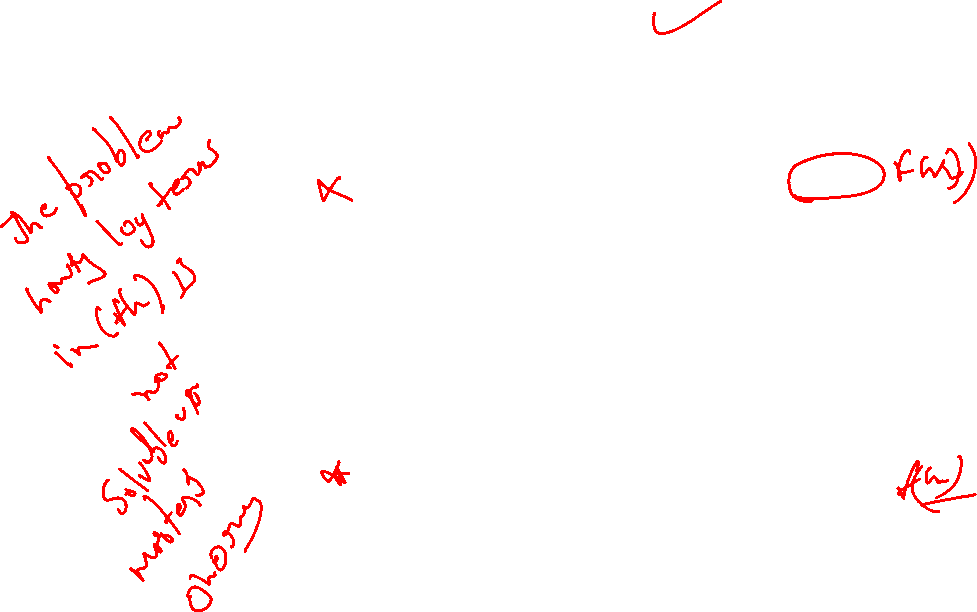 The problem
having log terms
in (fn) is
not
Solvable us
masters
f(n))
f(n)